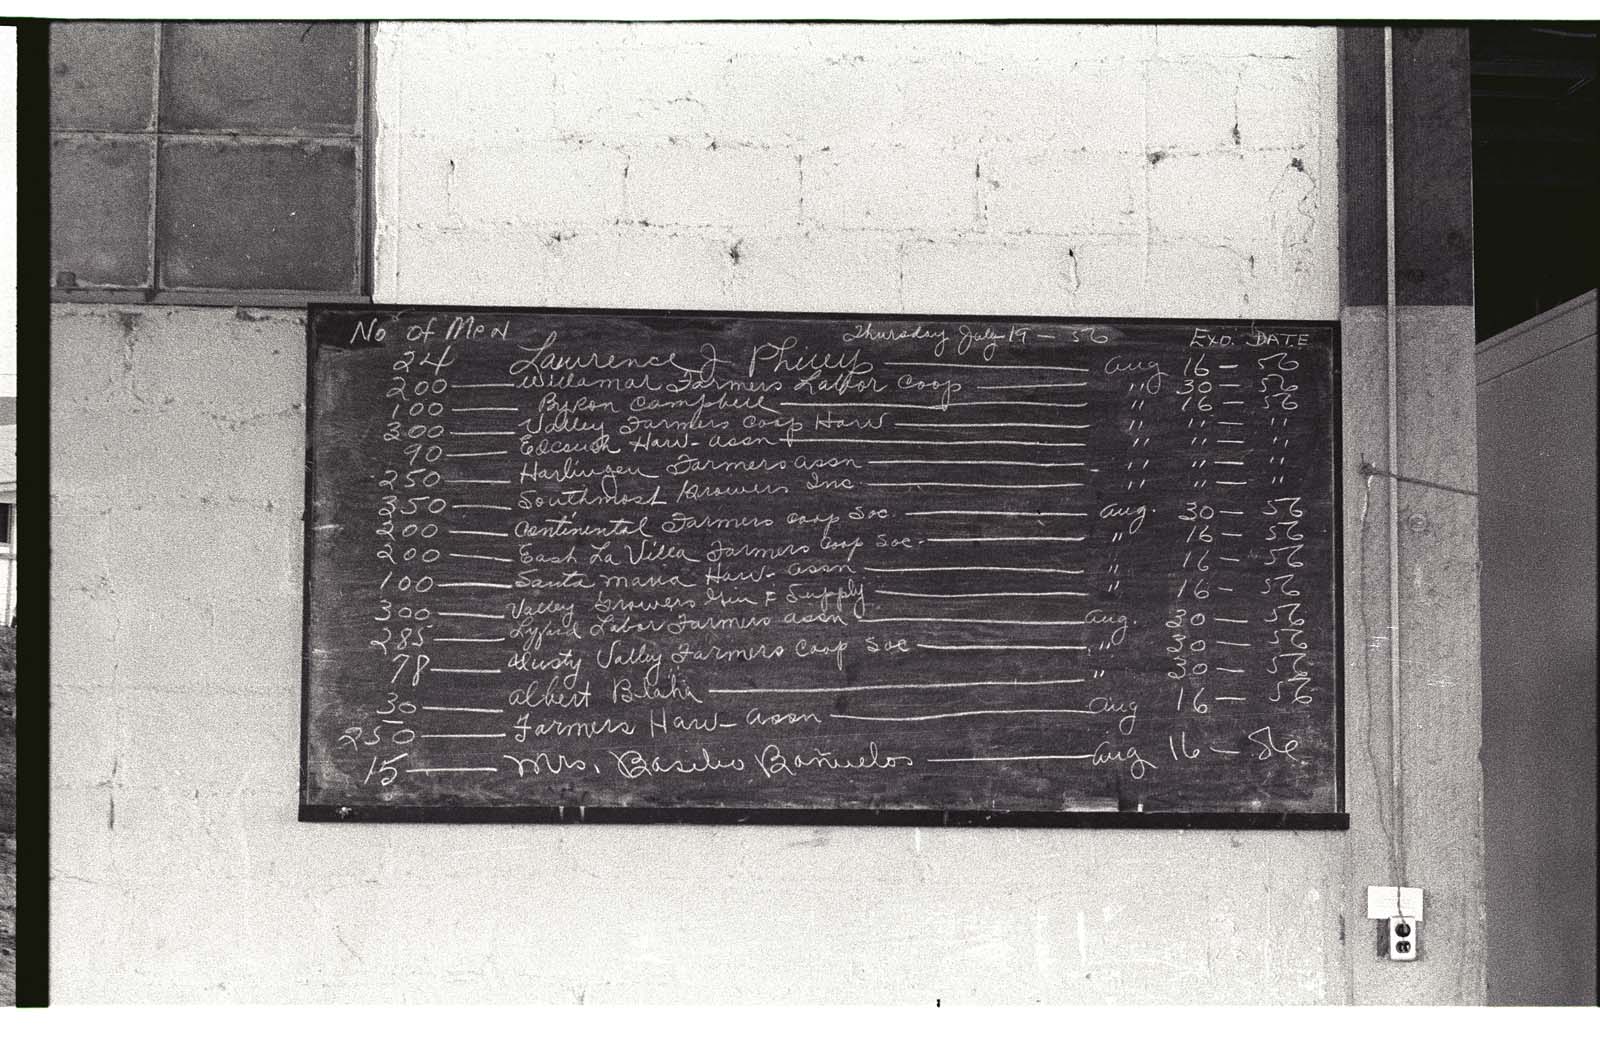 No of Men Thursday July 19 - 56 Exp. DATE
24 Lawrence J ——— Aug 16 - 56
200 — Willamar Farmers Labor Coop — " 30 - 56
100 — Byron Campbell — " 16 - 56
300 — Valley Farmers Coop Harv — " " - "
90 — Edcouch Harv - assn — " " - "
250 — Harlingen Farmers assn — " " - "
350 — Southmost Growers Inc — " " - "
200 — Continental Farmers Coop Soc. — aug. 30 - 56
200 — East La Villa Farmers Coop Soc - — " 16 - 56
100 — Santa Maria Harv - assn — " 16 - 56
300 — Valley Growers Gin & Supply — " 16 - 56
285 — Lyford Labor Farmers assn — aug. 30 - 56
78 — Valley Farmers Coop Soc — " 30 - 56
30 — Albert Blaha — " 30 - 56
250 — Farmers Harv - assn — aug 16 - 56
15 — Mrs. Basilio Bañuelos — Aug 16 - 56